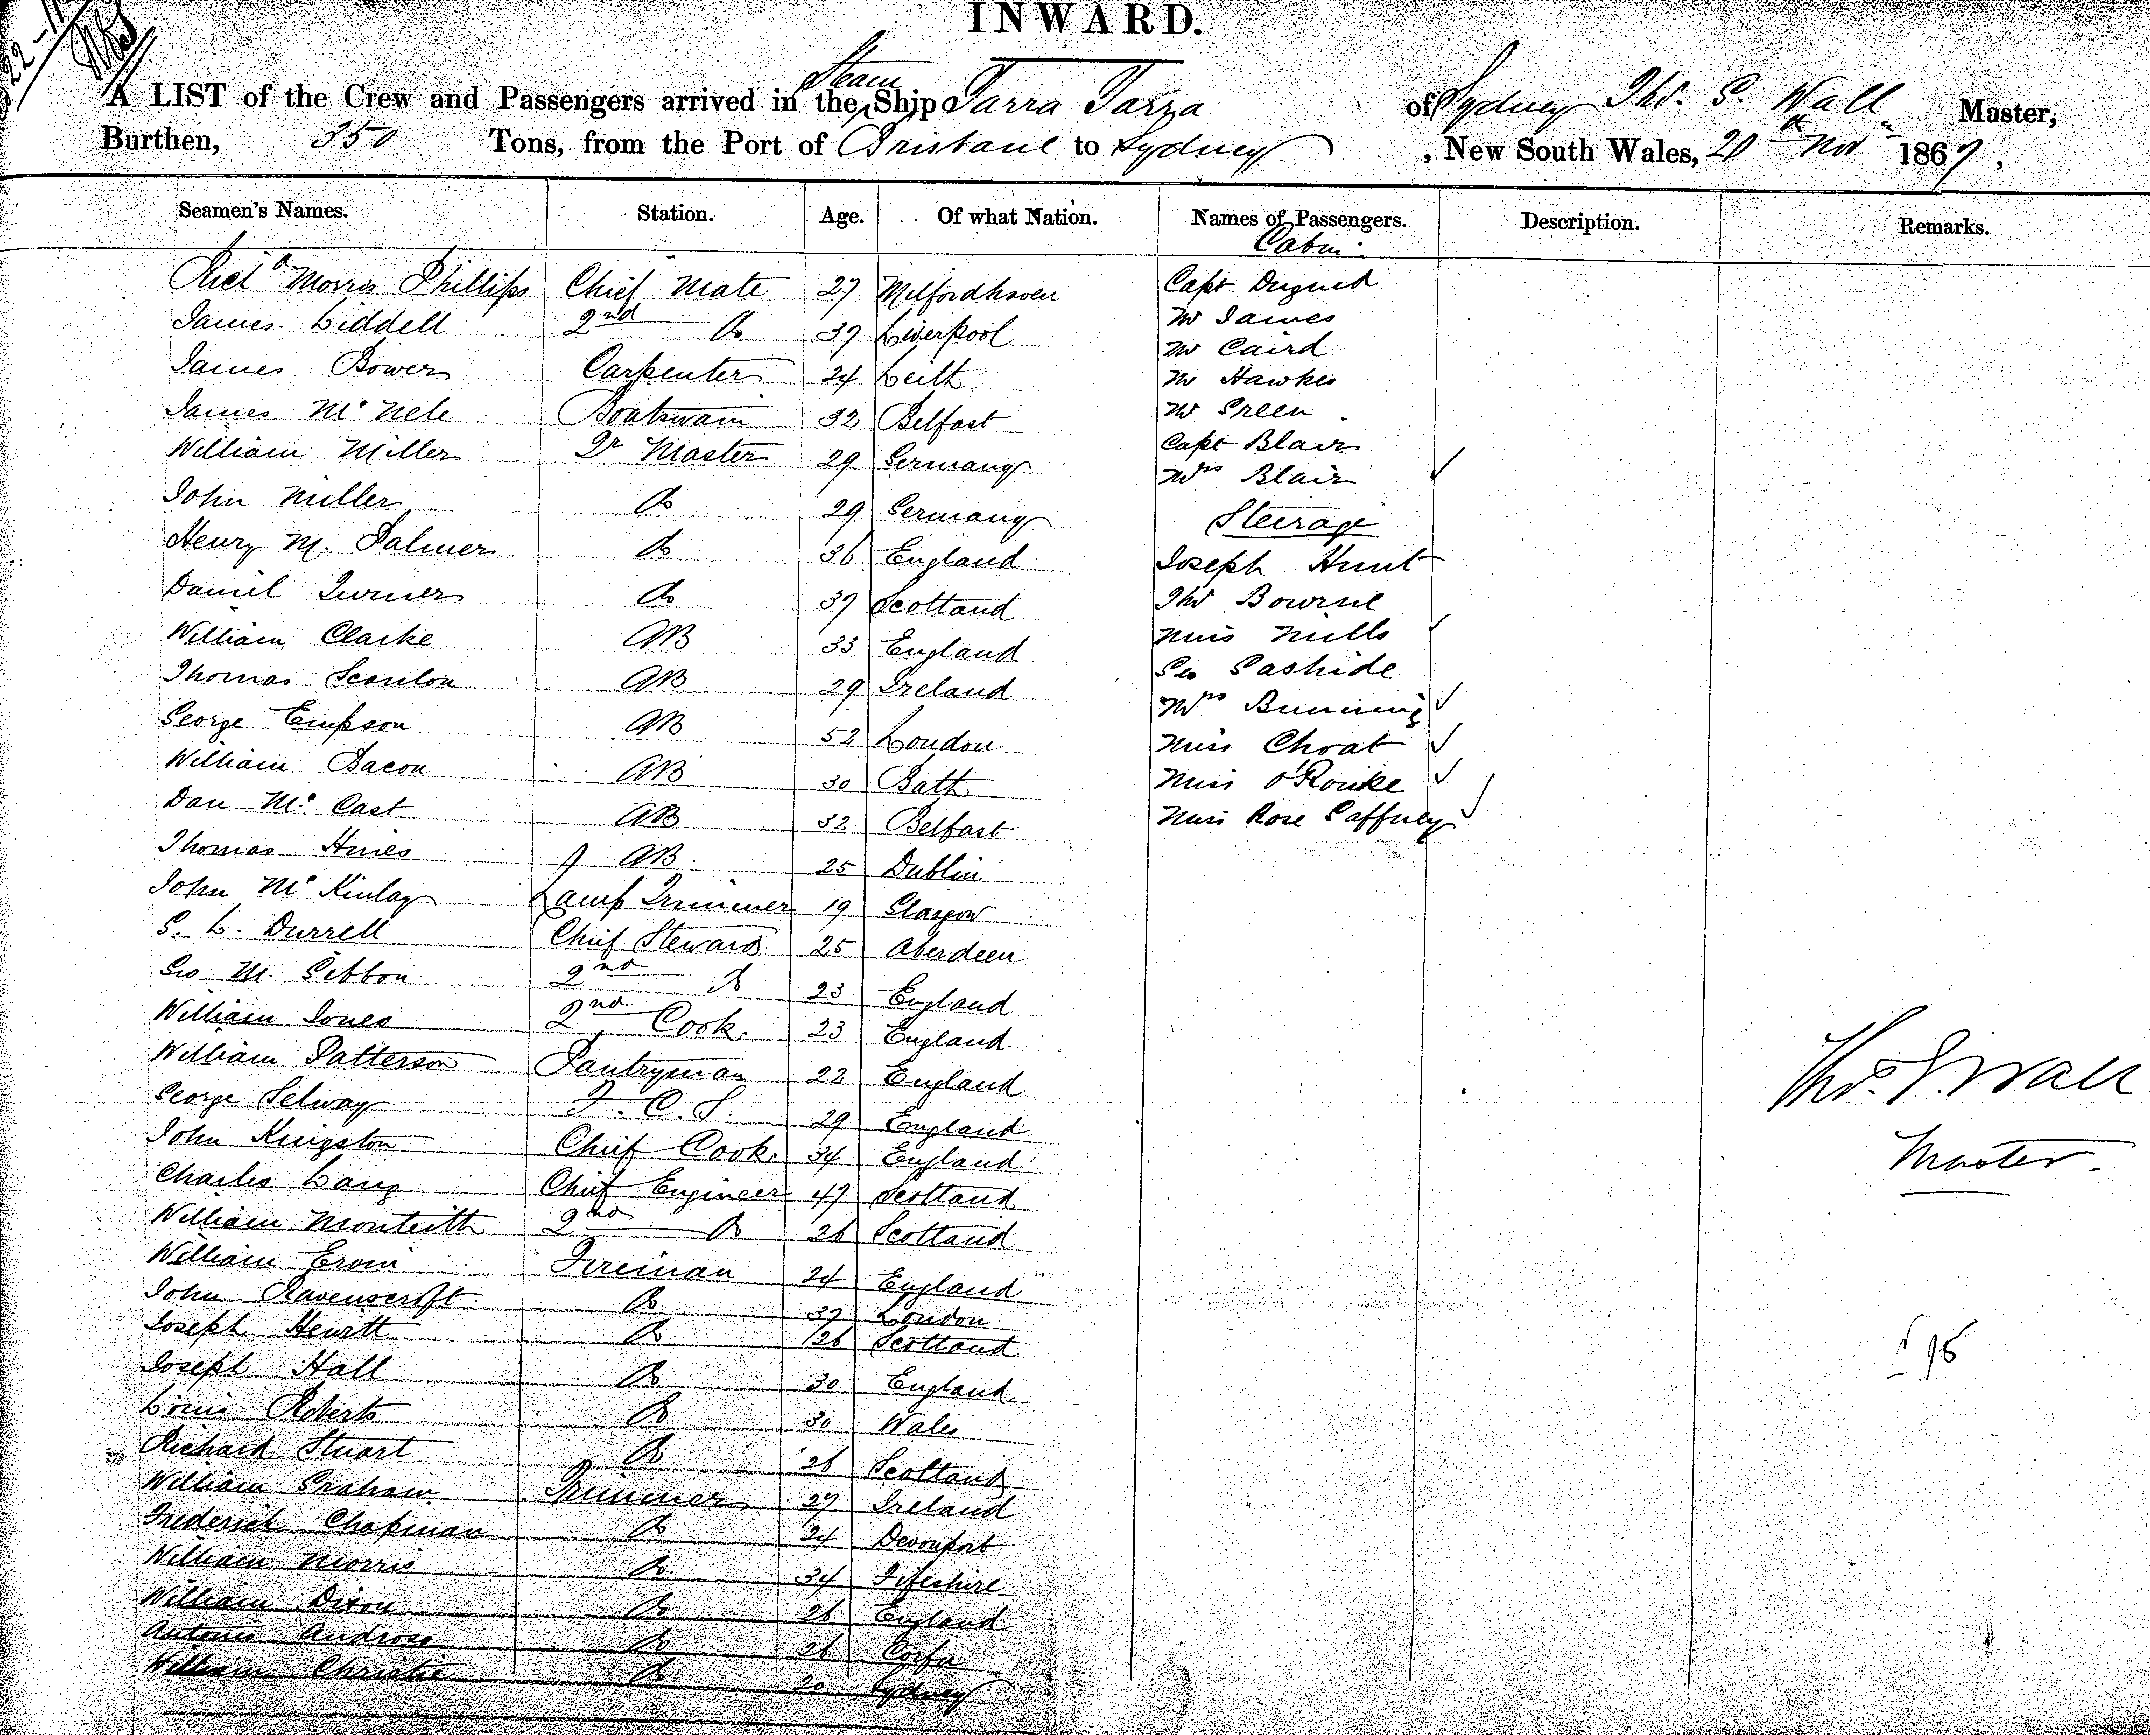 INWARD.
A LIST of the Crew and Passengers arrived in the Steam Ship Yarra Yarra of Sydney Thos. S. Wall Master,
Burthen, 350 Tons, from the Port of Brisbane to Sydney, New South Wales, 20th Nov 1867,
Seamen's Names. Station. Age. Of what Nation. Names of Passengers. Description. Remarks.
Cabin
Richd Morris Phillips Chief Mate 27 Milfordhaven Capt Duguid
James Liddell 2nd Do 37 Liverpool Mr James
Mr Caird
James Bower Carpenter 24 Leith Mr Hawkes
James McNele Boatswain 32 Belfast Mr Green
William Miller Qr Master 29 Germany Capt Blair
Mrs Blair
John Miller Do 29 Germany Steerage
Henry M. Palmer Do 36 England Joseph Hunt
Daniel Turner Do 37 Scotland Thos Bourne
William Clarke AB 33 England Miss Mills
Thomas Scanlon AB 29 Ireland Geo Gashide
George Empson AB 52 London Mrs Bunning
Miss Choat
William Bacon AB 30 Bath Miss O'Rourke
Dan Mc Cast AB 32 Belfast Miss Rose Gaffney
Thomas Hines AB 25 Dublin
John McKinlay Lamp Trimmer 19 Glasgow
G. L. Durrell Chief Steward 25 Aberdeen
Geo M. Gibbon 2nd Do 23 England
William Jones 2nd Cook 23 England
William Patterson Pantryman 22 England
George Selway F. C. S. 29 England
John Kingston Chief Cook 34 England
Charles Lang Chief Engineer 47 Scotland
William Monteith 2nd Do 26 Scotland
William Ervin Fireman 24 England
John Ravenscroft Do 37 London
Joseph Hewitt Do 26 Scotland
Joseph Hall Do 30 England
Louis Roberts Do 30 Wales
Richard Stuart Do 26 Scotland
William Graham Trimmer 27 Ireland
Frederick Chapman Do 24 Devonport
William Morris Do 34 Fifeshire
William Dixon Do 26 England
Antonio Androse Do 26 Corfu
William Christie Do 20 Sydney
Thos. S. Wall
Master